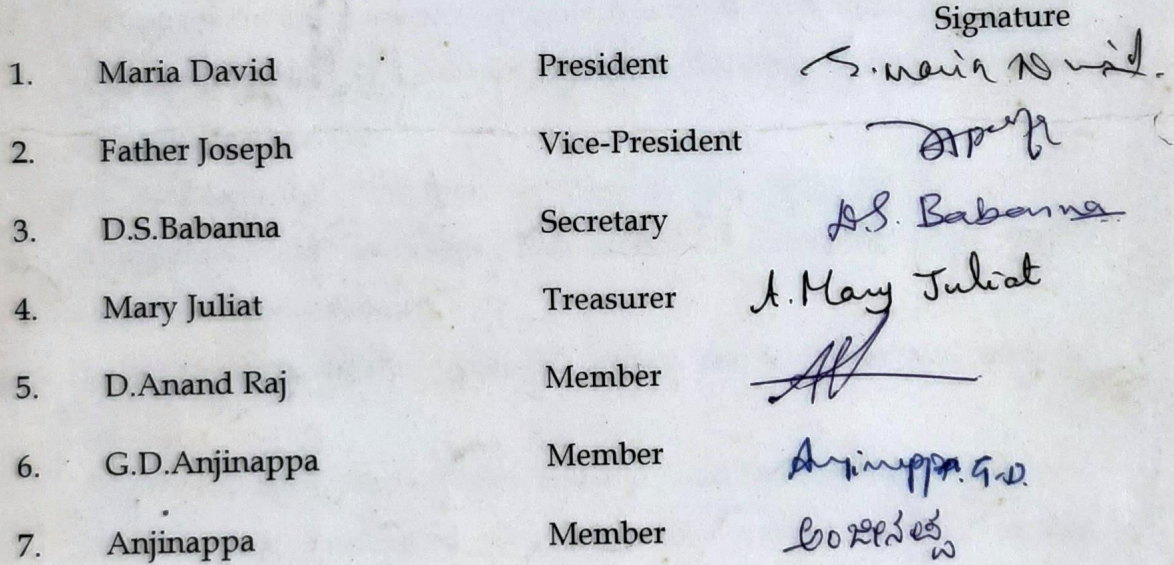 Signature
1. Maria David President S. Maria David.
2. Father Joseph Vice-President
3. D.S.Babanna Secretary D.S. Babanna
4. Mary Juliat Treasurer A. Mary Juliat
5. D.Anand Raj Member
6. G.D.Anjinappa Member Anjinappa. G.D.
7. Anjinappa Member ಅಂಜಿನಪ್ಪ